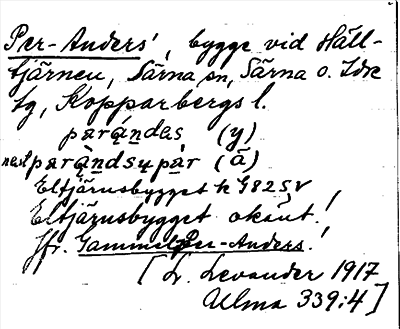 Per-Anders', bygge vid Häll-
tjärnen, Särna sn, Särna o. Idre
tg, Kopparbergs l.
parándas (y)
parąndsų pàr (ä)
Eltjärnsbygget h G 82 S V
Eltjärnsbygget okänt!
Jfr. Gammel Per-Anders!
[L. Levander 1917
Ulma 339:4]